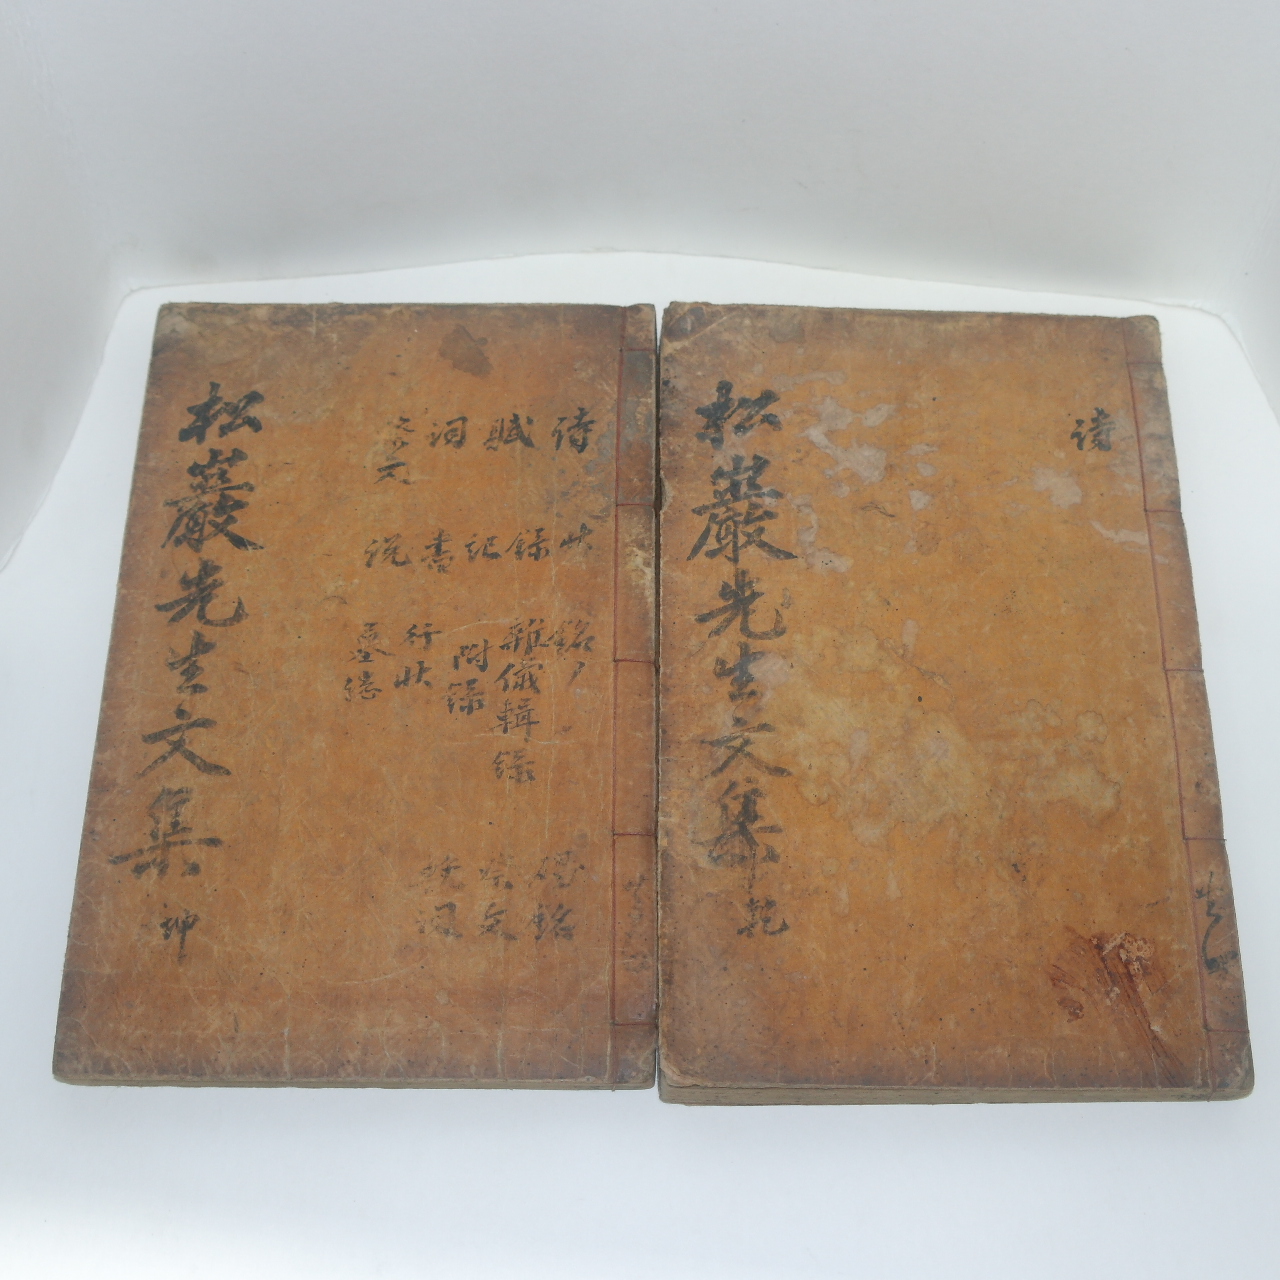 詩
松巖先生文集 乾
詩 賦 詞 祭文
狀 錄 記 書 説
銘 雜儀輯錄 附錄 行狀 墓誌
碣銘 祭文
松巖先生文集 坤